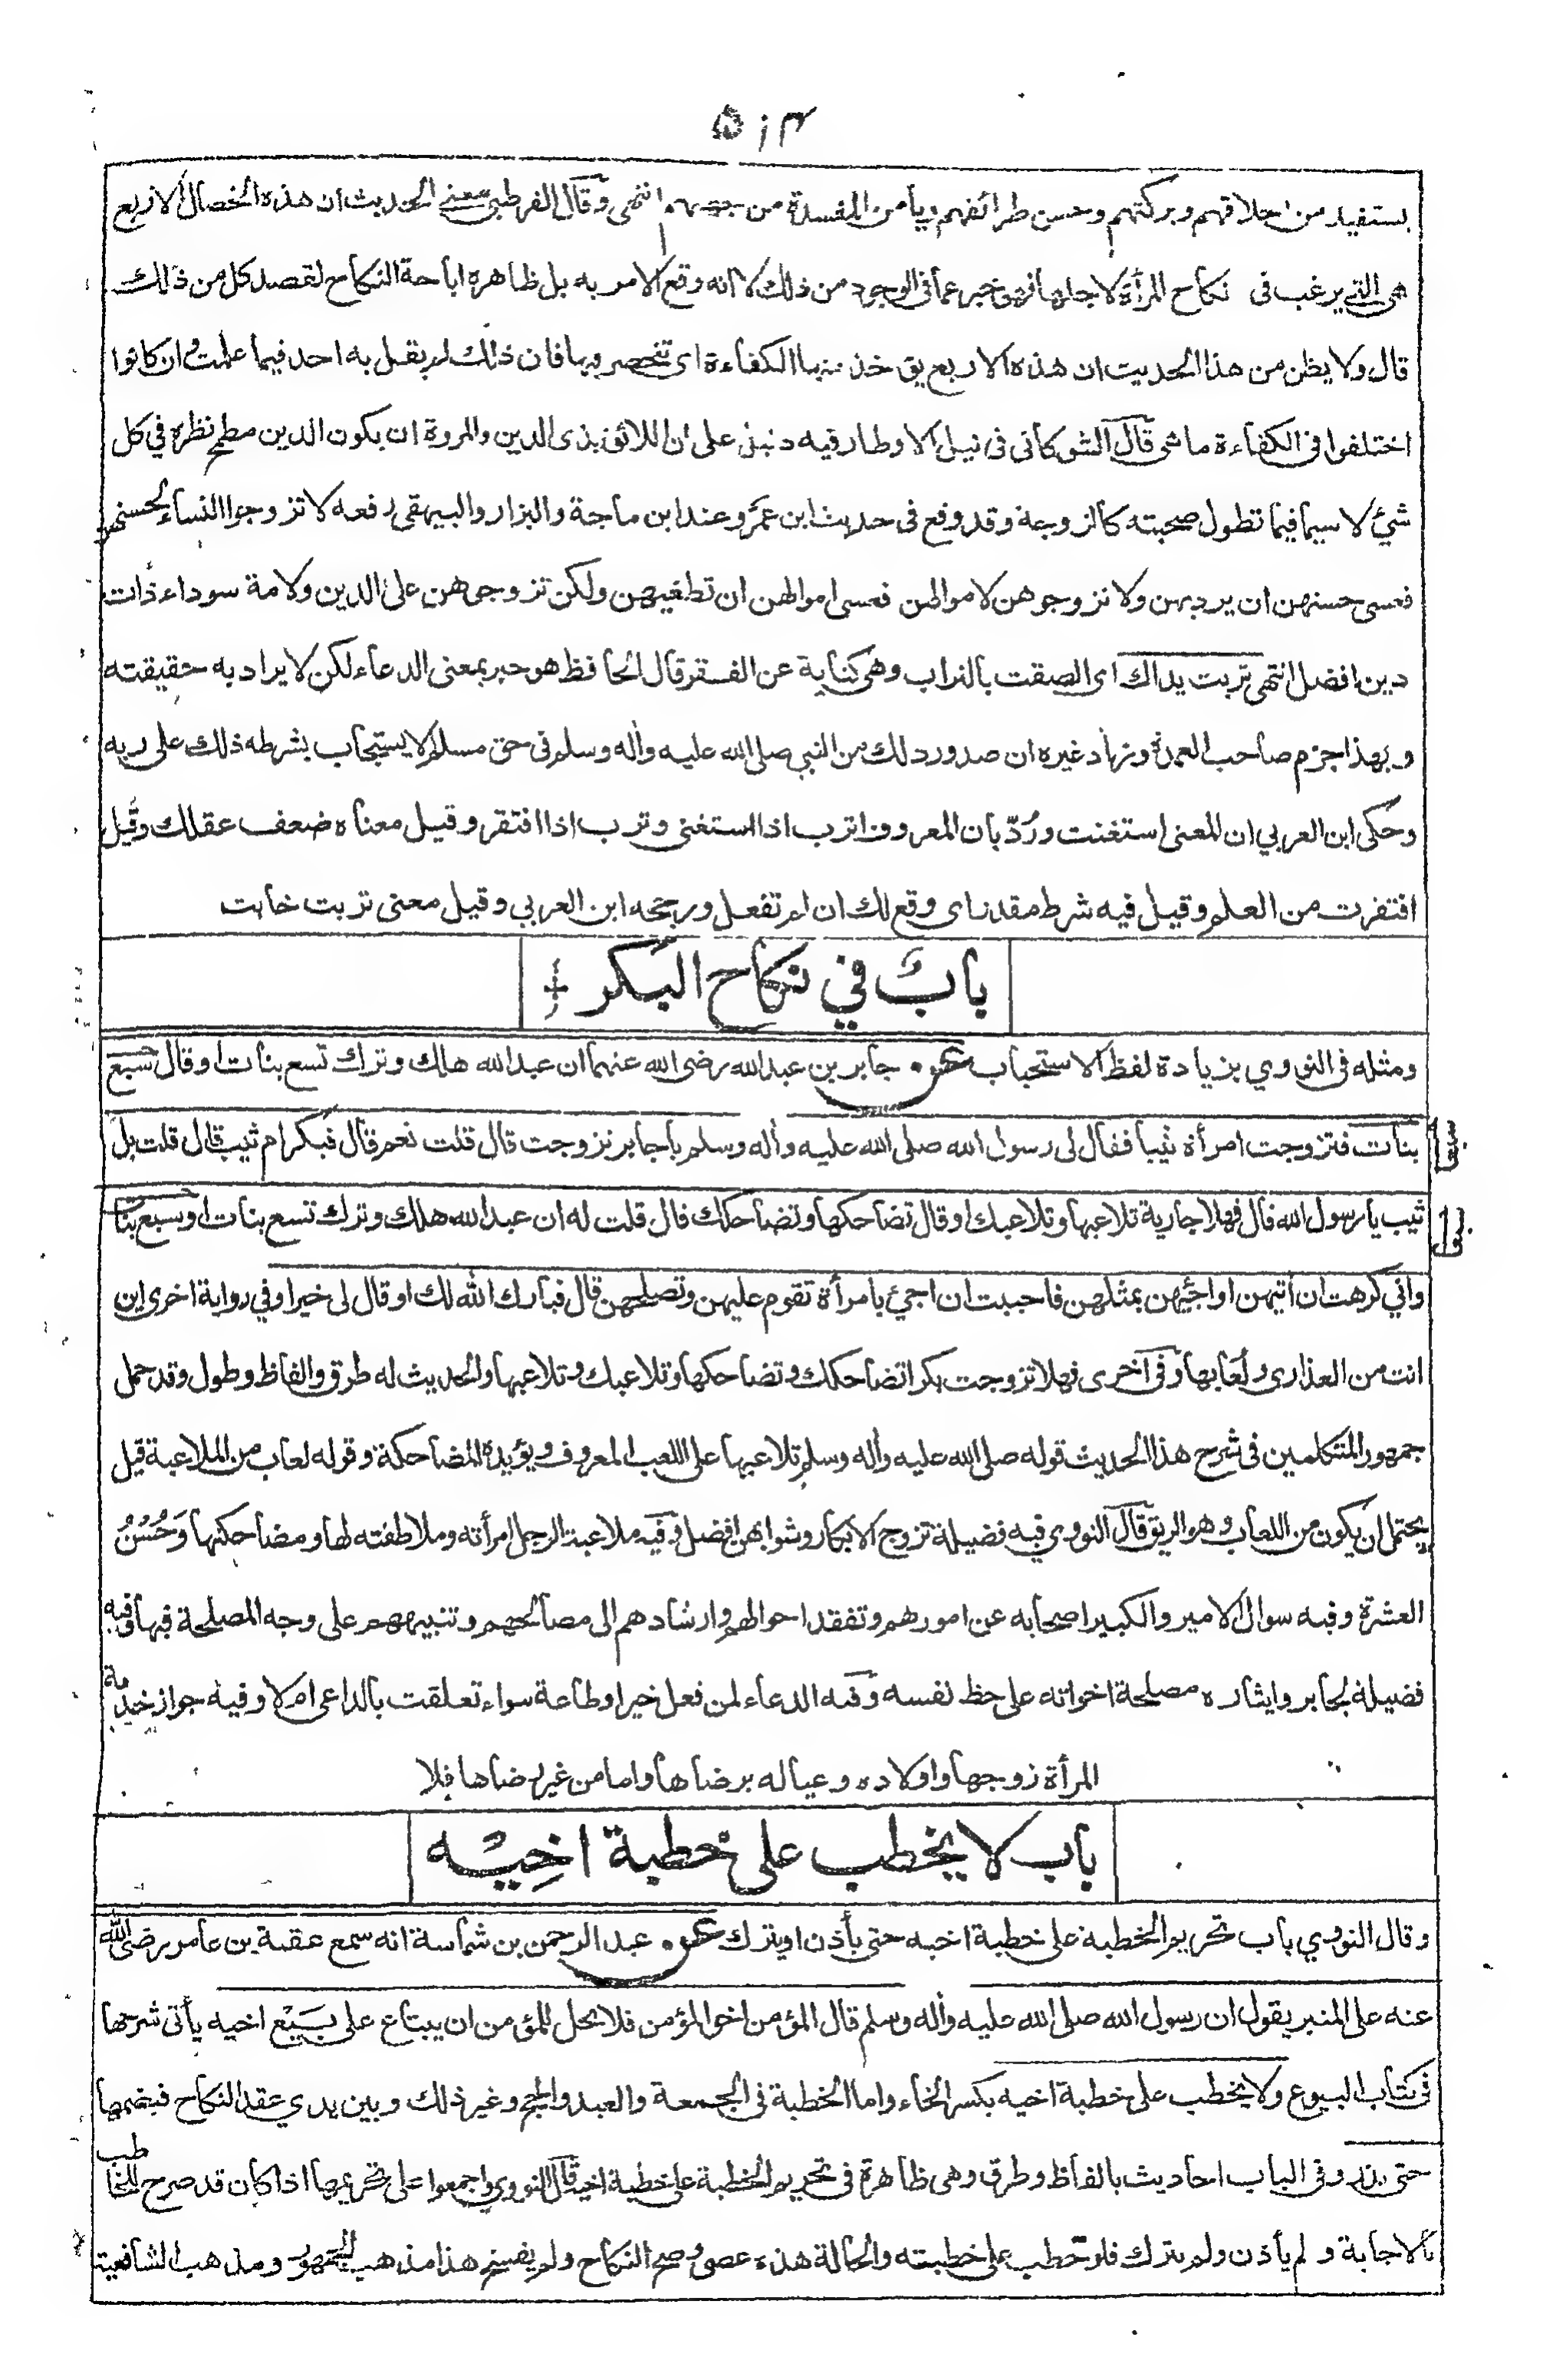 ٥١٣
يستفيد من اخلاقهم وبركتهم وحسن طرائفهم ويأمن المفسدة من جهتهم انتهى وقال القرطبي معنى الحديث ان هذه الخصال الاربع
هى التى يرغب فى نكاح المرأة لاجلها فهو خبر عما فى الوجود من ذلك لا انه وقع الامر به بل ظاهره اباحة النكاح لقصد كل من ذلك
قال ولا يظن من هذا الحديث ان هذه الاربع يؤخذ منها الكفاءة اى تنحصر فيها فان ذلك لم يقل به احد فيما علمت وان كانوا
اختلفوا فى الكفاءة ما هى قال الشوكانى فى نيل الاوطار فيه دليل على ان اللائق بذى الدين والمروة ان يكون الدين مطمح نظره في كل
شئ لا سيما فيما تطول صحبته كالزوجة وقد وقع فى حديث ابن عمرو عند ابن ماجة والبزار والبيهقى رفعه لا تزوجوا النساء لحسنهن
فعسى حسنهن ان يرديهن ولا تزوجوهن لاموالهن فعسى اموالهن ان تطغيهن ولكن تزوجوهن على الدين ولامة سوداء ذات
دين افضل انتهى تربت يداك اى الصقت بالتراب وهى كناية عن الفقر قال الحافظ هو خبر بمعنى الدعاء لكن لا يراد به حقيقته
وبهذا جزم صاحب العمدة وزاد غيره ان صدور ذلك من النبي صلى الله عليه وأله وسلم فى حق مسلم لا يستجاب بشرطه ذلك على ربه
وحكى ابن العربي ان المعنى استغنت ورُدّ بان المعروف اترب اذا استغنى وترب اذا افتقر وقيل معناه ضعف عقلك وقيل
افتقرت من العلم وقيل فيه شرط مقدر اى وقع لك ان لم تفعل ورجحه ابن العربي وقيل معنى تربت خابت
باب في نكاح البكر
ومثله فى النووي بزيادة لفظ الاستحباب عن جابر بن عبد الله رضى الله عنهما ان عبد الله هلك وترك تسع بنات او قال سبع
بنات فتزوجت امرأة ثيبا فقال لى رسول الله صلى الله عليه وأله وسلم ياجابر تزوجت قال قلت نعم قال فبكر ام ثيب قال قلت بل
ثيب يا رسول الله قال فهلا جارية تلاعبها وتلاعبك او قال تضاحكها وتضاحكك قال قلت له ان عبد الله هلك وترك تسع بنات او سبع بنات
واني كرهت ان أتيهن او اجئهن بمثلهن فاحببت ان اجئ بامرأة تقوم عليهن وتصلحهن قال فبارك الله لك او قال لى خيرا وفي رواية اخرى اين
انت من العذارى ولعابها وفى اخرى فهلا تزوجت بكرا تضاحكك وتضاحكها وتلاعبك وتلاعبها والحديث له طرق والفاظ وطول وقد حمل
جمهور المتكلمين فى شرح هذا الحديث قوله صلى الله عليه وأله وسلم تلاعبها على اللعب المعروف ويؤيده المضاحكة وقوله لعاب من الملاعبة قيل
يحتمل ان يكون من اللعاب وهو الريق قال النووي فيه فضيلة تزوج الابكار وثوابهن افضل وفيه ملاعبة الرجل امرأته وملاطفته لها ومضاحكتها وَحُسْنُ
العشرة وفيه سوال الامير والكبير اصحابه عن امورهم وتفقد احوالهم وارشادهم الى مصالحهم وتنبيههم على وجه المصلحة فيها وفيه
فضيلة لجابر وايثاره مصلحة اخواته على حظ نفسه وفيه الدعاء لمن فعل خيرا وطاعة سواء تعلقت بالداعى ام لا وفيه جواز خدمة
المرأة زوجها واولاده وعياله برضاها واما من غير رضاها فلا
باب لا يخطب على خطبة اخيه
وقال النووي باب تحريم الخطبة على خطبة اخيه حتى يأذن او يترك عن عبد الرحمن بن شماسة انه سمع عقبة بن عامر رضى الله
عنه على المنبر يقول ان رسول الله صلى الله عليه وأله وسلم قال المؤمن اخو المؤمن فلا يحل للمؤمن ان يبتاع على بَيْع اخيه يأتى شرحها
فى كتاب البيوع ولا يخطب على خطبة اخيه بكسر الخاء واما الخطبة فى الجمعة والعيد والحج وغير ذلك وبين يدي عقد النكاح فبضمها
حتى يذر وفى الباب احاديث بالفاظ وطرق وهى ظاهرة فى تحريم الخطبة على خطبة اخيه قال النووي واجمعوا على تحريمها اذا كان قد صرح للخاطب
بالاجابة ولم يأذن ولم يترك فلو خطب على خطبته والحالة هذه عصى وصح النكاح ولم يفسخ هذا مذهب الجمهور ومذهب الشافعية